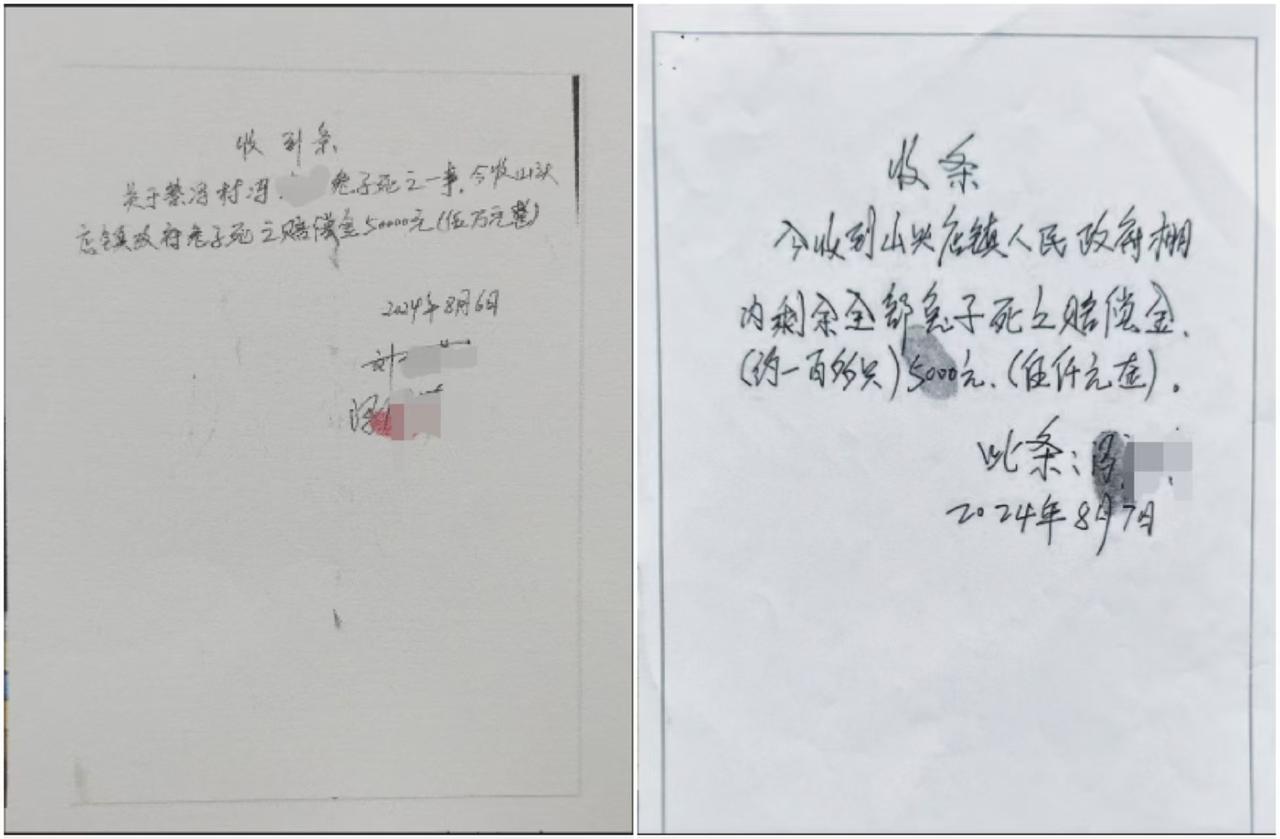 收到条
关于蔡冯村冯 兔子死之一事，今收山头
店镇政府兔子死之赔偿金50000元(伍万元整)
2024年8月6日
刘
冯
收条
今收到山头店镇人民政府棚
内剩余全部兔子死之赔偿金、
(约一百多只)5000元、(伍仟元整)。
此条：冯
2024年8月7日